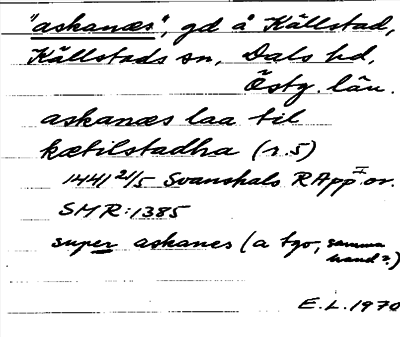 "askanæs", gd å Källstad,
Källstads sn, Dals hd,
Östg. län.
askanæs laa til
kætilstadha (r. 5)
1441 21/5 Svanshals RApp II or.
SMR: 1385
super askanes (a tgo, samma
hand?)
E.L. 1970